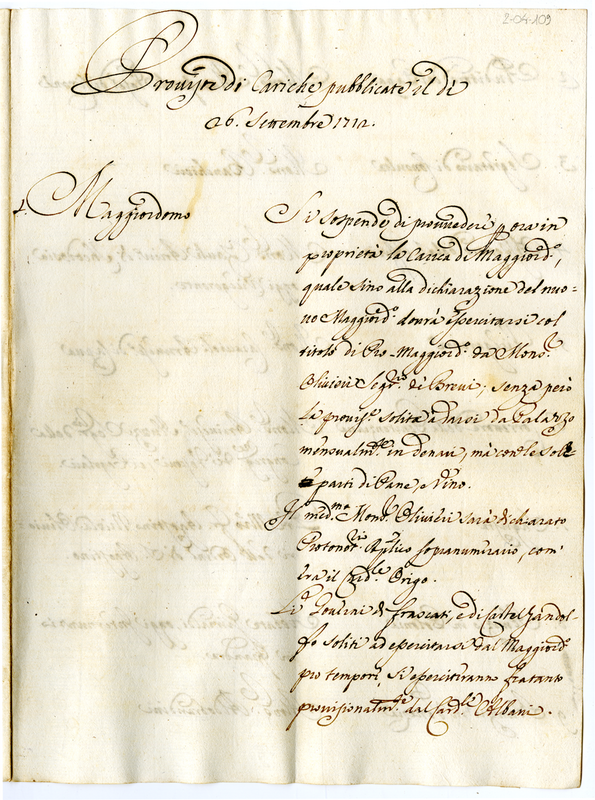 2-04-109
Proviste di Cariche pubblicate il dì
26. Settembre 1712.
1. Maggiordomo
Si sospende di provvedere p ora in
proprietà la Carica di Maggiord.o,
quale sino alla dichiarazione del nuo=
vo Maggiord.o dovrà esercitarsi col
titolo di Pro-Maggiord.o da Mons.r
Olivieri Segr.rio de Brevi; senza però
la provis.e solita à darsi da Palazzo
mensualm.te in denari, mà con le sole
parti di Pane, e Vino.
Il med.mo Mons.r Olivieri sarà dichiarato
Protonot.rio Aplico sopranumerario, com'
era il Card.le Origo.
Li Governi di Frascati, e di Castel Gandol=
fo soliti ad esercitarsi dal Maggiord.o
pro tempore, si eserciteranno fratanto
provisionalm.te dal Card.le Albani.